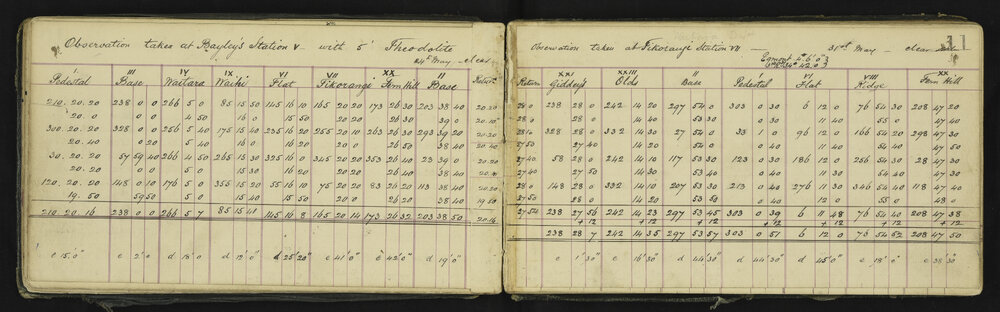 Observation taken at Bayley's Station V with 5" Theodolite
24th May clear
III IV IX VI VII XX II
Pedestal Base Waitara Waihi Flat Tikorangi Fern Hill Base Return
210. 20. 20 238 0 0 266 5 0 85 15 50 145 16 10 165 20 20 173 26 30 203 38 40 20.20
20. 0 0 0 4 50 16 0 15 50 20 20 26 30 39 0
300. 20. 20 328 0 0 356 5 40 175 15 40 235 16 20 255 20 10 263 26 30 293 39 20 20.20
20. 40 0 20 5 40 16 0 16 20 20 0 26 50 38 40
30. 20. 20 57 59 40 266 4 50 265 15 30 325 16 20 345 20 20 353 26 40 23 39 0
20. 20 0 0 5 0 15 30 16 20 20 0 26 40 38 40
120. 20. 20 148 0 10 176 5 0 355 15 20 55 16 10 75 20 20 83 26 20 113 38 40
19. 50 59 50 5 0 15 40 15 50 20 0 26 20 38 50 19.50
210 20 16 238 0 0 266 5 7 85 15 41 145 16 8 165 20 14 173 26 32 203 38 50 20.16
e 15'0" e 2'0 d 18'0 d 19'0" d 25'20" e 41'0" e 42'0" d 19'0"
Observation taken at Tikorangi Station VII 31st May clear
11
XXI XXIII II VI VIII XX
Return Giddey's Olds Base Pedestal Flat Ridge Fern Hill
28 0 238 28 0 242 14 20 297 54 0 303 0 30 6 12 0 76 54 30 208 47 20
28 0 28 0 14 40 53 30 0 30 11 40 55 0 47 40
328 28 0 332 14 30 27 54 0 33 1 0 96 12 0 166 54 20 298 47 30
27 50 27 40 14 20 54 0 0 40 11 40 54 40 47 40
27 40 58 28 0 242 14 10 117 53 30 123 0 30 186 12 0 256 54 30 28 47 30
27 40 27 50 14 30 53 40 0 40 11 30 54 40 47 30
28 0 148 28 0 332 14 10 207 53 30 213 0 40 276 11 30 346 54 40 118 47 40
27 50 28 0 14 20 53 50 0 40 12 0 55 0 48 0
27 54 238 27 56 242 14 23 297 53 45 303 0 39 6 11 48 76 54 40 208 47 38
+12 +12 +12 +12 +12 +12 +12
238 28 7 242 14 35 297 53 57 303 0 51 6 12 0 76 54 52 208 47 50
e 1'30" e 16'30" d 44'30" d 44'30" d 45'0" e 18'0" e 38'30"